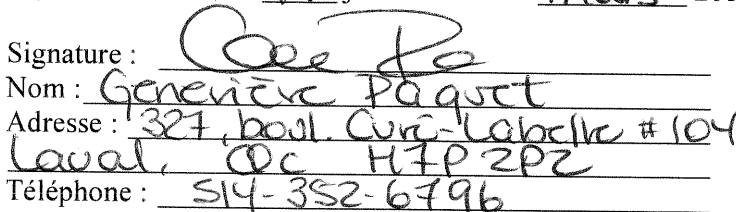 Signature :
Nom : Geneviève Paquet
Adresse : 327, boul. Curé-Labelle #104
Laval, Qc H7P 2P2
Téléphone : 514-352-6796